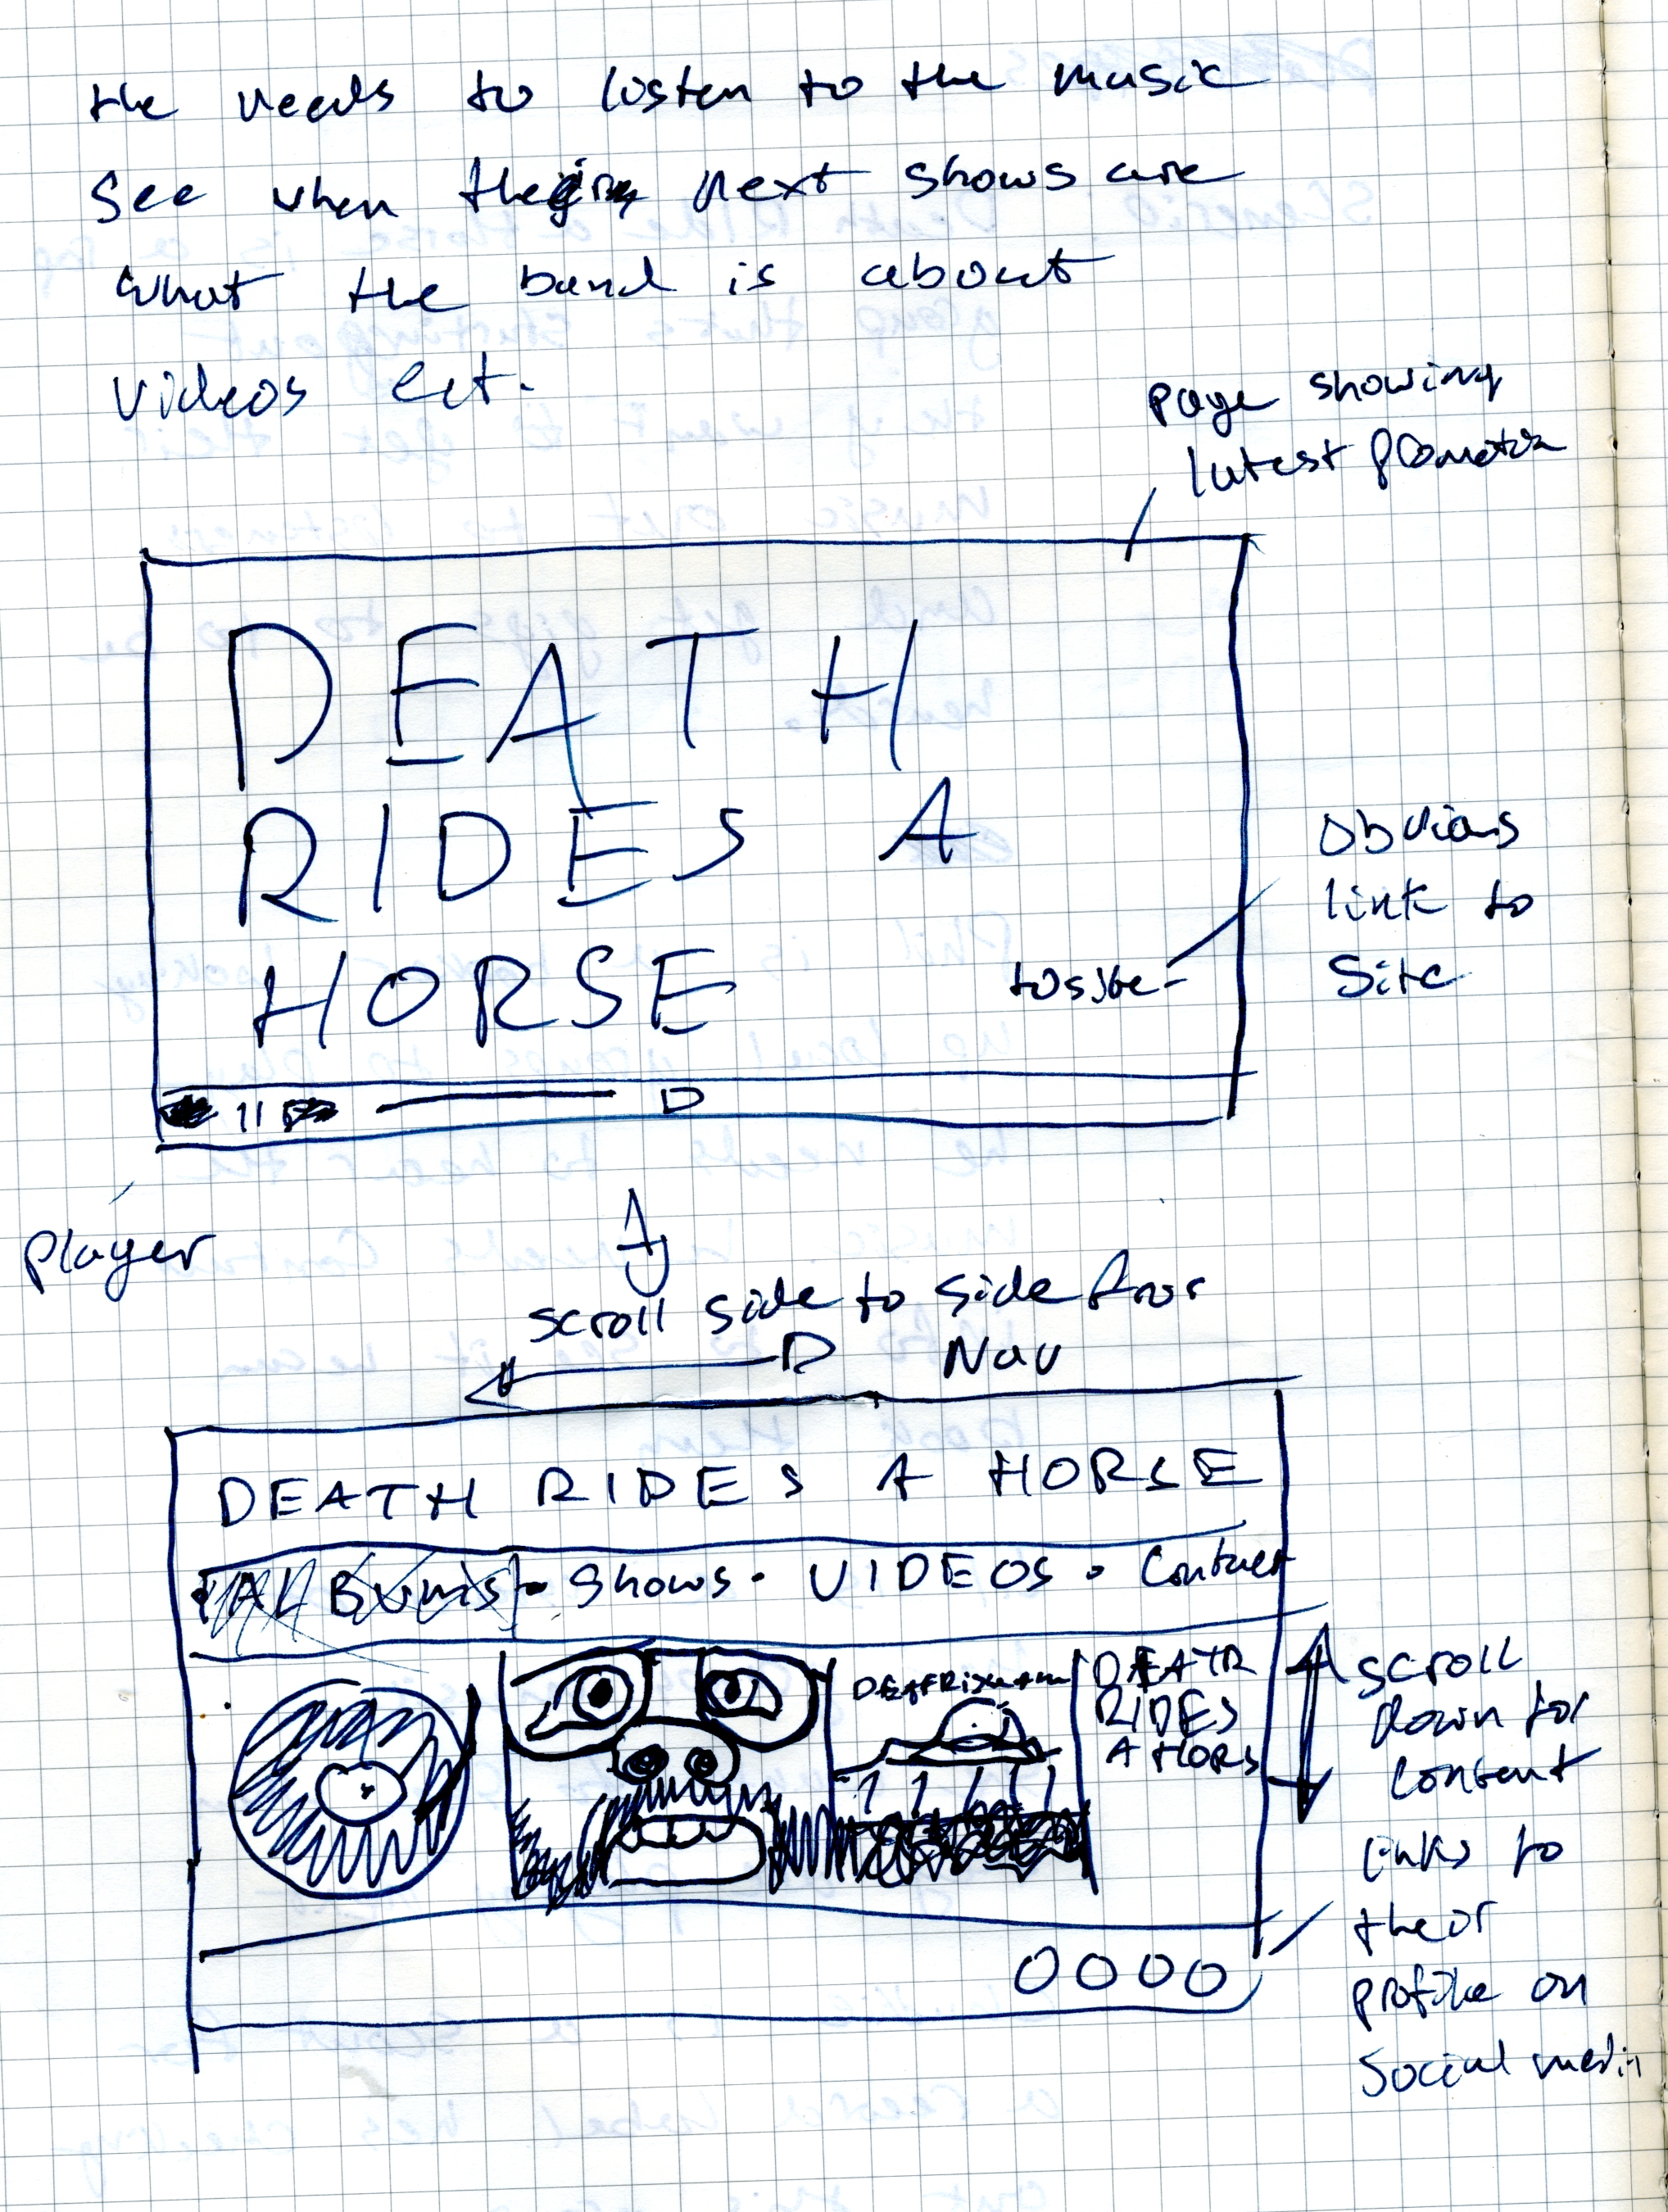 He needs to listen to the music
See when their next shows are
what the band is about
videos ect.
page showing
latest promotion
DEATH
RIDES A
HORSE
to site
Obvious
link to
Site
player
scroll side to side for
Nav
DEATH RIDES A HORSE
ALBUMS • Shows • VIDEOS • Contact
DEATH
RIDES
A HORS
scroll
down for
content
links to
their
profile on
social media